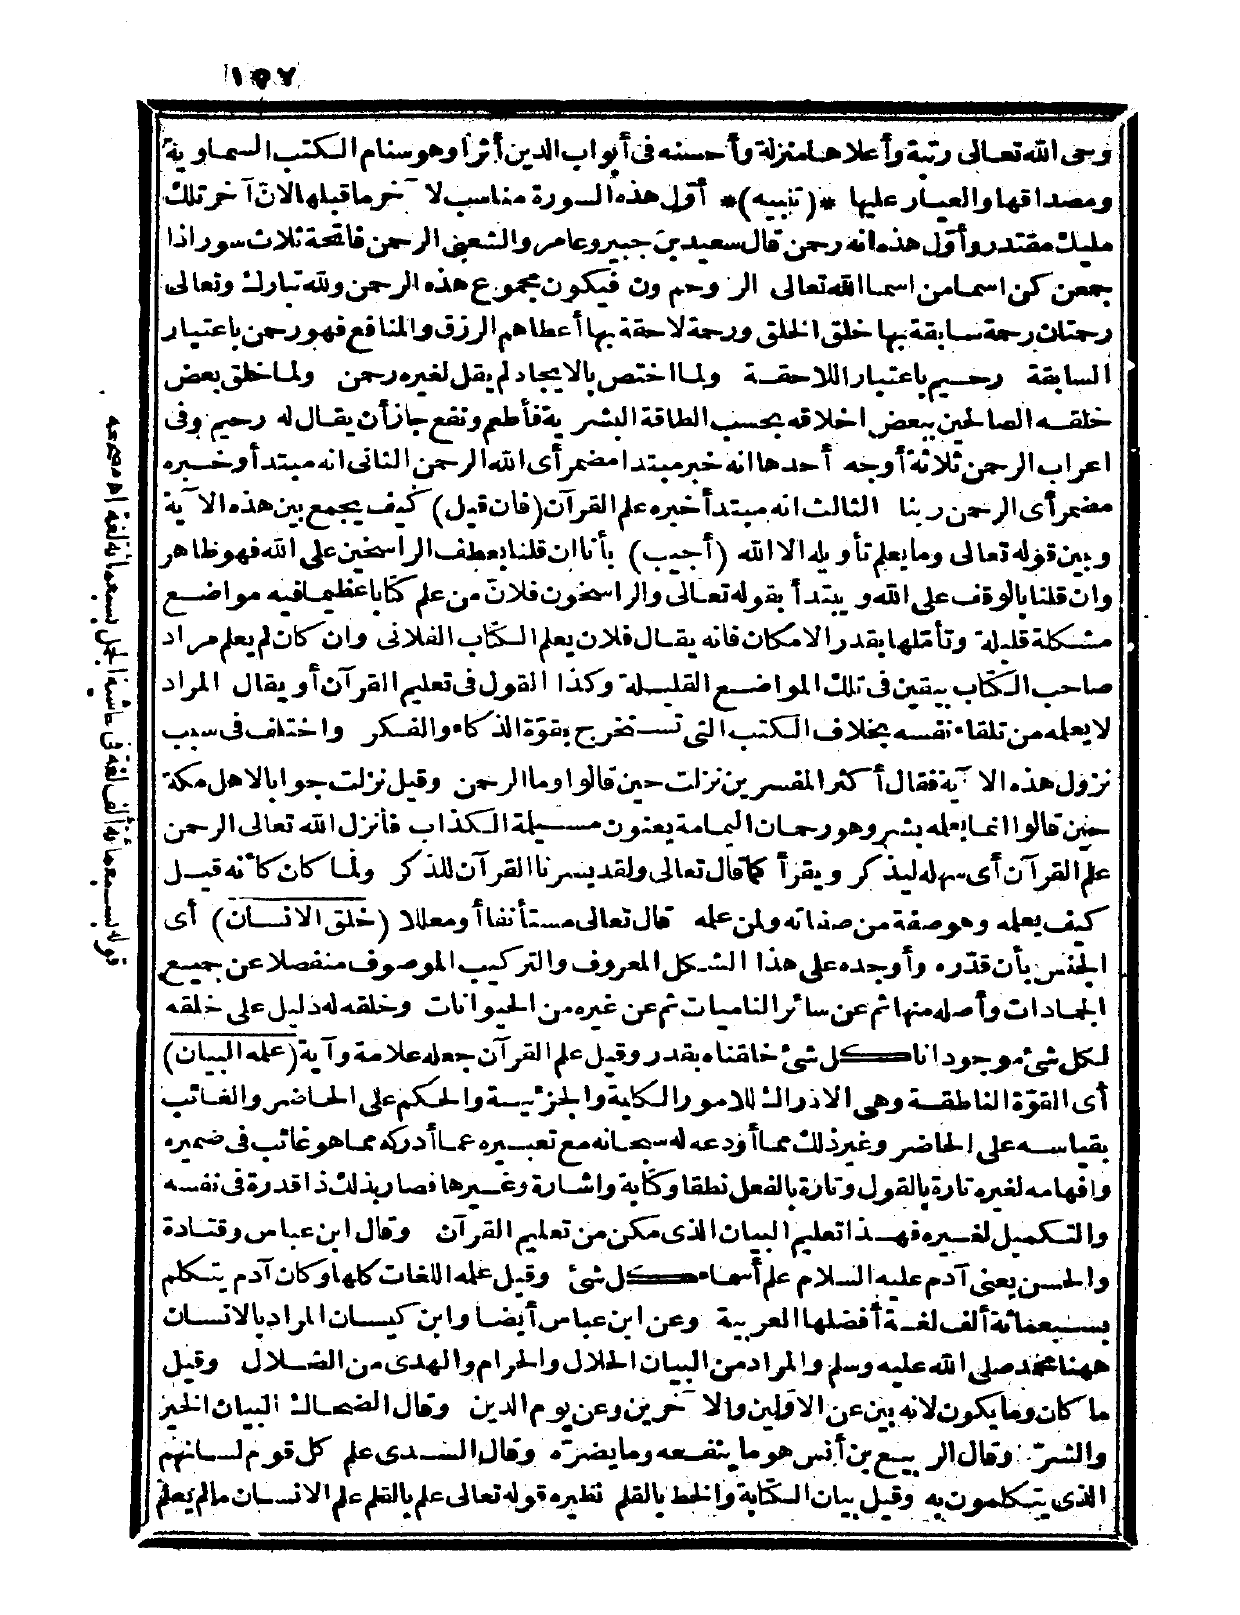 ١٥٧
وحى الله تعالى رتبة وأعلاها منزلة وأحسنه فى أبواب الدين أثرا وهو سنام الكتب السماوية
ومصداقها والعيار عليها *(تنبيه)* أوّل هذه السورة مناسب لآخر ما قبلها لانّ آخر تلك
مليك مقتدر وأوّل هذه انه رحمن قال سعيد بن جبير وعامر والشعبى الرحمن فاتحة ثلاث سور اذا
جمعن كن اسما من اسما الله تعالى الر وحم ون فيكون مجموع هذه الرحمن ولله تبارك وتعالى
رحمتان رحمة سابقة بها خلق الخلق ورحمة لاحقة بها أعطاهم الرزق والمنافع فهو رحمن باعتبار
السابقة رحيم باعتبار اللاحقة ولما اختص بالايجاد لم يقل لغيره رحمن ولما خلق بعض
خلقه الصالحين ببعض اخلاقه بحسب الطاقة البشرية فأطعم ونفع جاز أن يقال له رحيم وفى
اعراب الرحمن ثلاثة أوجه أحدها انه خبر مبتدا مضمر أى الله الرحمن الثانى انه مبتدأ وخبره
مضمر أى الرحمن ربنا الثالث انه مبتدأ خبره علم القرآن (فان قيل) كيف يجمع بين هذه الآية
وبين قوله تعالى وما يعلم تأويله الا الله (أجيب) بأنا ان قلنا بعطف الراسخين على الله فهو ظاهر
وان قلنا بالوقف على الله ويبتدأ بقوله تعالى والراسخون فلانّ من علم كتابا عظيما فيه مواضع
مشكلة قليلة وتأمّلها بقدر الامكان فانه يقال فلان يعلم الكتاب الفلانى وان كان لم يعلم مراد
صاحب الكتاب بيقين فى تلك المواضع القليلة وكذا القول فى تعليم القرآن أو يقال المراد
لا يعلمه من تلقاء نفسه بخلاف الكتب التى تستخرج بقوّة الذكاء والفكر واختلف فى سبب
نزول هذه الآية فقال أكثر المفسرين نزلت حين قالوا وما الرحمن وقيل نزلت جوابا لاهل مكة
حين قالوا انما يعلمه بشر وهو رحمان اليمامة يعنون مسيلمة الكذاب فأنزل الله تعالى الرحمن
علم القرآن أى سهله ليذكر ويقرأ كما قال تعالى ولقد يسرنا القرآن للذكر ولما كان كأنه قيل
كيف يعلمه وهو صفة من صفاته ولمن علمه قال تعالى مستأنفا أو معللا (خلق الانسان) أى
الجنس بأن قدّره وأوجده على هذا الشكل المعروف والتركيب الموصوف منفصلا عن جميع
الجمادات وأصله منها ثم عن سائر الناميات ثم عن غيره من الحيوانات وخلقه له دليل على خلقه
لكل شئ موجود انا كل شئ خلقناه بقدر وقيل علم القرآن جعله علامة وآية (علمه البيان)
أى القوّة الناطقة وهى الادراك للامور الكلية والجزئية والحكم على الحاضر والغائب
بقياسه على الحاضر وغير ذلك مما أودعه له سبحانه مع تعبيره عما أدركه مما هو غائب فى ضميره
وافهامه لغيره تارة بالقول وتارة بالفعل نطقا وكتابة واشارة وغيرها فصار بذلك ذا قدرة فى نفسه
والتكميل لغيره فهذا تعليم البيان الذى مكن من تعليم القرآن وقال ابن عباس وقتادة
والحسن يعنى آدم عليه السلام علم أسماء كل شئ وقيل علمه اللغات كلها وكان آدم يتكلم
بسبعمائة ألف لغة أفضلها العربية وعن ابن عباس أيضا وابن كيسان المراد بالانسان
ههنا محمد صلى الله عليه وسلم والمراد من البيان الحلال والحرام والهدى من الضلال وقيل
ما كان وما يكون لانه بين عن الاوّلين والآخرين وعن يوم الدين وقال الضحاك البيان الخير
والشرّ وقال الربيع بن أنس هو ما ينفعه وما يضرّه وقال السدى علم كل قوم لسانهم
الذى يتكلمون به وقيل بيان الكتابة والخط بالقلم نظيره قوله تعالى علم بالقلم علم الانسان ما لم يعلم
قوله بسبعمائة ألف لغة فى حاشية الجمل بسبعمائة لغة اه مصححه